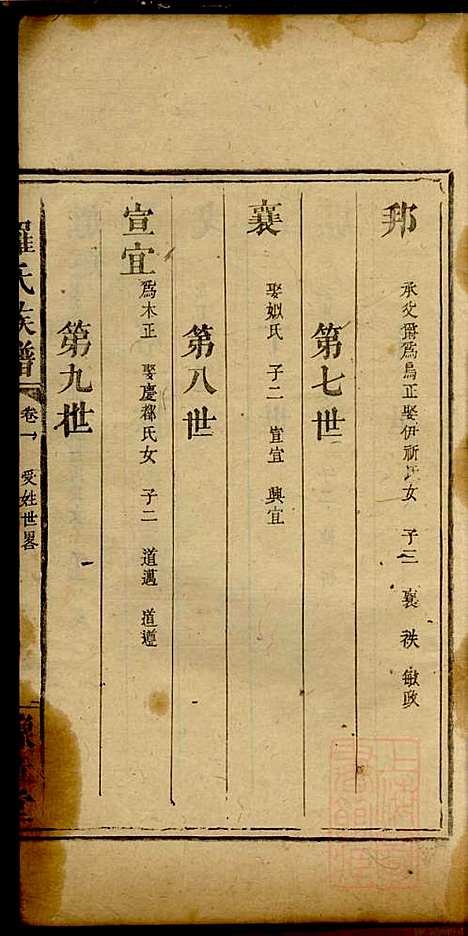 邦 承父爵爲鳥正娶伊祈氏女 子三 襄 秩 敏政
第七世
襄 娶姒氏 子二 宣宜 興宜
第八世
宣宜 爲木正 娶慶都氏女 子二 道邁 道遵
第九世
羅氏族譜 卷一 受姓世畧